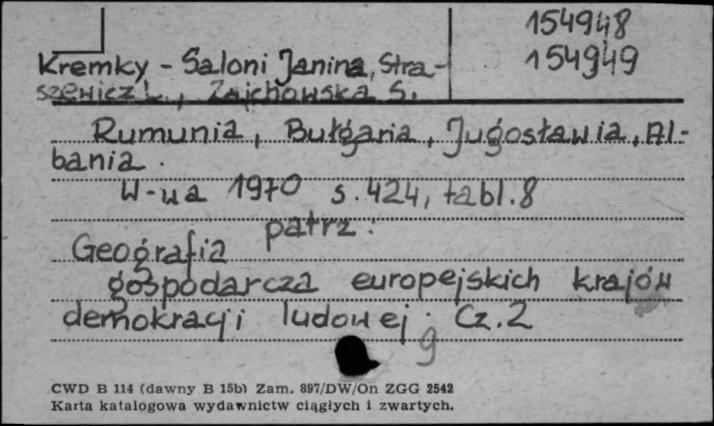 154948
154949
Kremky - Saloni Janina, Stra-
szewicz L., Zajchowska S.
Rumunia, Bułgaria, Jugosławia, Al-
bania.
W-wa 1970 s. 424, tabl. 8
patrz:
Geografia
gospodarcza europejskich krajów
demokracji ludowej. Cz. 2
g
CWD B 114 (dawny B 15b) Zam. 897/DW/On ZGG 2542
Karta katalogowa wydawnictw ciągłych i zwartych.